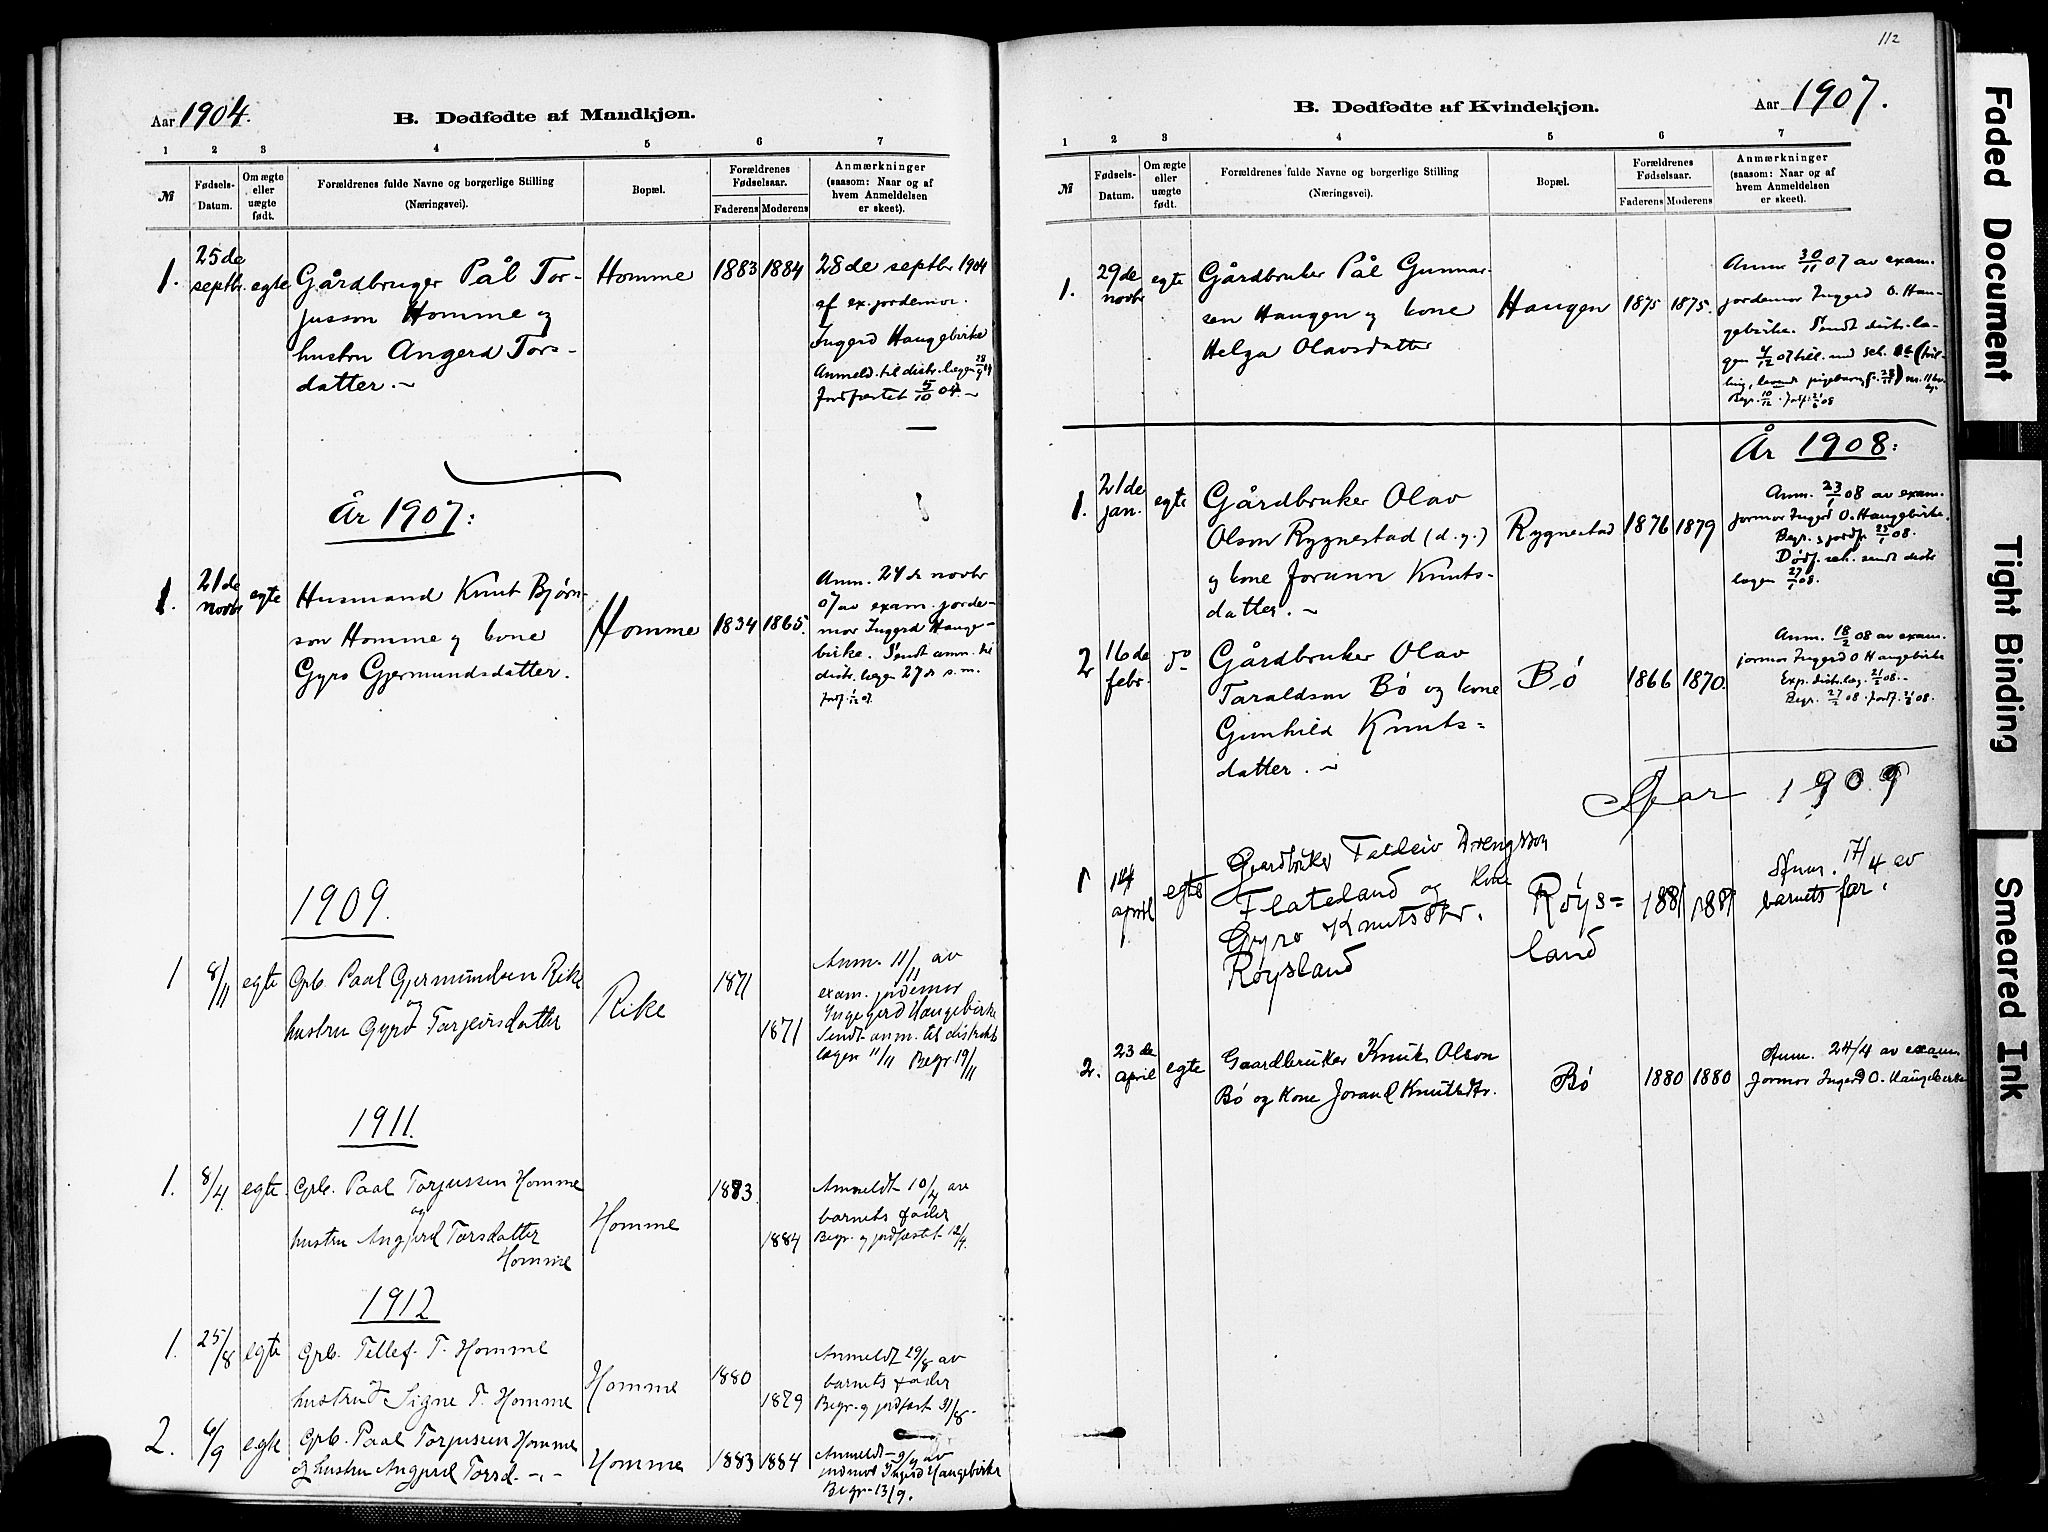 112
Aar 1904.
B. Dødfødte af Mandkjøn.
1 2 3 4 5 6 7
№ Fødsels-Datum. Om ægte eller uægte født. Forældrenes fulde Navne og borgerlige Stilling (Næringsvei). Bopæl. Forældrenes Fødselsaar. Faderens Moderens Anmærkninger (saasom: Naar og af hvem Anmeldelsen er skeet).
1. 25de septbr. egte Gårdbruger Pål Tor-
jusson Homme og
hustru Angerd Tors-
datter. Homme 1883 1884
28de septbr 1904
af ex. jordemor.
Ingerd Haugebirke
Anmeld. til distr. lægen 28/9 04
Jordfæstet 5/10 04.
År 1907:
1. 21de novbr egte Husmand Knut Bjørn-
son Homme og kone
Gyro Gjermundsdatter. Homme 1834 1865.
Anm. 24de novbr
07 av exam. jorde-
mor Ingerd Hauge-
birke. Sendt anm. til
distr. lægen 27de s.m.
Jordf. 1/12 07.
1909.
1 8/11 egte Grb. Paal Gjermundsen Rike
og
hustru Gyro Tarjeisdatter Rike 1871 1871
Anm. 11/11 av
exam. jordemor
Ingegerd Haugebirke
Sendt anm. til distrikts
lægen 11/11 Begr 19/11
1911.
1. 8/4. egte. Grb. Paal Torjussen Homme
og
hustru Angjerd Torsdatter
Homme Homme 1883. 1884
Anmeldt 10/4 av
barnets fader
Begr. og jordfæstet 12/4.
1912
1. 25/8 egte Grb. Tellef T. Homme
hustru Signe T. Homme Homme 1880 1879
Anmeldt 29/8 av
barnets fader
Begr. og jordfæst 31/8.
2. 6/9 egte Grb. Paal Torjussen Homme
og hustru Angjerd Torsd. -"- Homme 1883 1884
Anmeldt 9/9 av
jordmor Ingerd Haugebirke
Begr. 13/9.
B. Dødfødte af Kvindekjøn.
Aar 1907.
1 2 3 4 5 6 7
№ Fødsels-Datum. Om ægte eller uægte født. Forældrenes fulde Navne og borgerlige Stilling (Næringsvei). Bopæl. Forældrenes Fødselsaar. Faderens Moderens Anmærkninger (saasom: Naar og af hvem Anmeldelsen er skeet).
1. 29de novbr egte Gårdbruker Pål Gunnar-
sen Haugen og kone
Helga Olavsdatter Haugen 1875 1875.
Anm 30/11 07 av exam-
jordemor Ingerd O. Hau-
gebirke. Sendt distr. læ-
gen 4/12 07
Begr. 10/12. Jordf. 21/6 08
År 1908:
1. 21de jan. egte Gårdbruker Olav
Olson Rygnestad (d.y.)
og kone Jorunn Knuts-
datter. Rygnestad 1876 1879
Anm. 23/1 08 av exam.
jormor Ingerd O. Haugebirke.
Begr. og jordf. 25/1 08.
Dødf. sch. sendt distr
lægen 27/1 08.
2 16de febr. do Gårdbruker Olav
Taraldson Bø og kone
Gunhild Knuts-
datter. Bø 1866 1870.
Anm. 18/2 08 av exam.
jormor Ingerd O Haugebirke
Exp. distr. læg. 21/2 08.
Begr. 27/2 08. Jordf. 21/6 08.
Aar 1909
1 14 april egte Gardbruker Talleiv Drengsson
Flateland og kone
Gyro Knutsdtr.
Røysland Røys=
land 1881 1881
Anm. 17/4 av
barnets far.
2. 23de april egte Gaardbruker Knut Olson
Bø og kone Jorand Knutsdtr. Bø 1880 1880
Anm. 24/4 av exam.
jormor Ingerd O. Haugebirke
Faded Document
Tight Binding
Smeared Ink